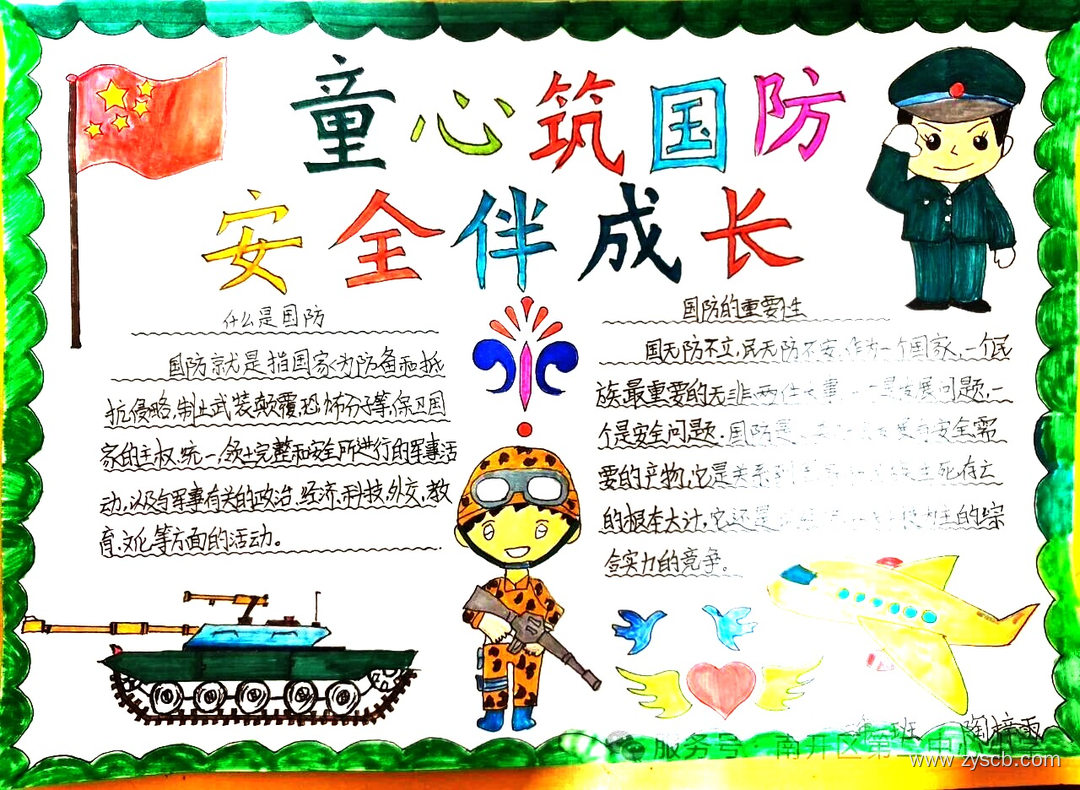 童心筑国防
安全伴成长
什么是国防
国防就是指国家为防备和抵
抗侵略,制止武装颠覆,恐怖分子等,保卫国
家的主权,统一,领土完整和安全所进行的军事活
动,以及与军事有关的政治、经济、科技、外交、教
育、文化等方面的活动。
国防的重要性
国无防不立,民无防不安,作为一个国家,一个民
族,最重要的无非两件大事,一是发展问题,一
个是安全问题.国防是
安全需
要的产物,它是关系到
生死存亡
的根本大计,它还是
的综
合实力的竞争。
班 陶梓雯
服务号·南开区第二中心小学
www.zyscb.com